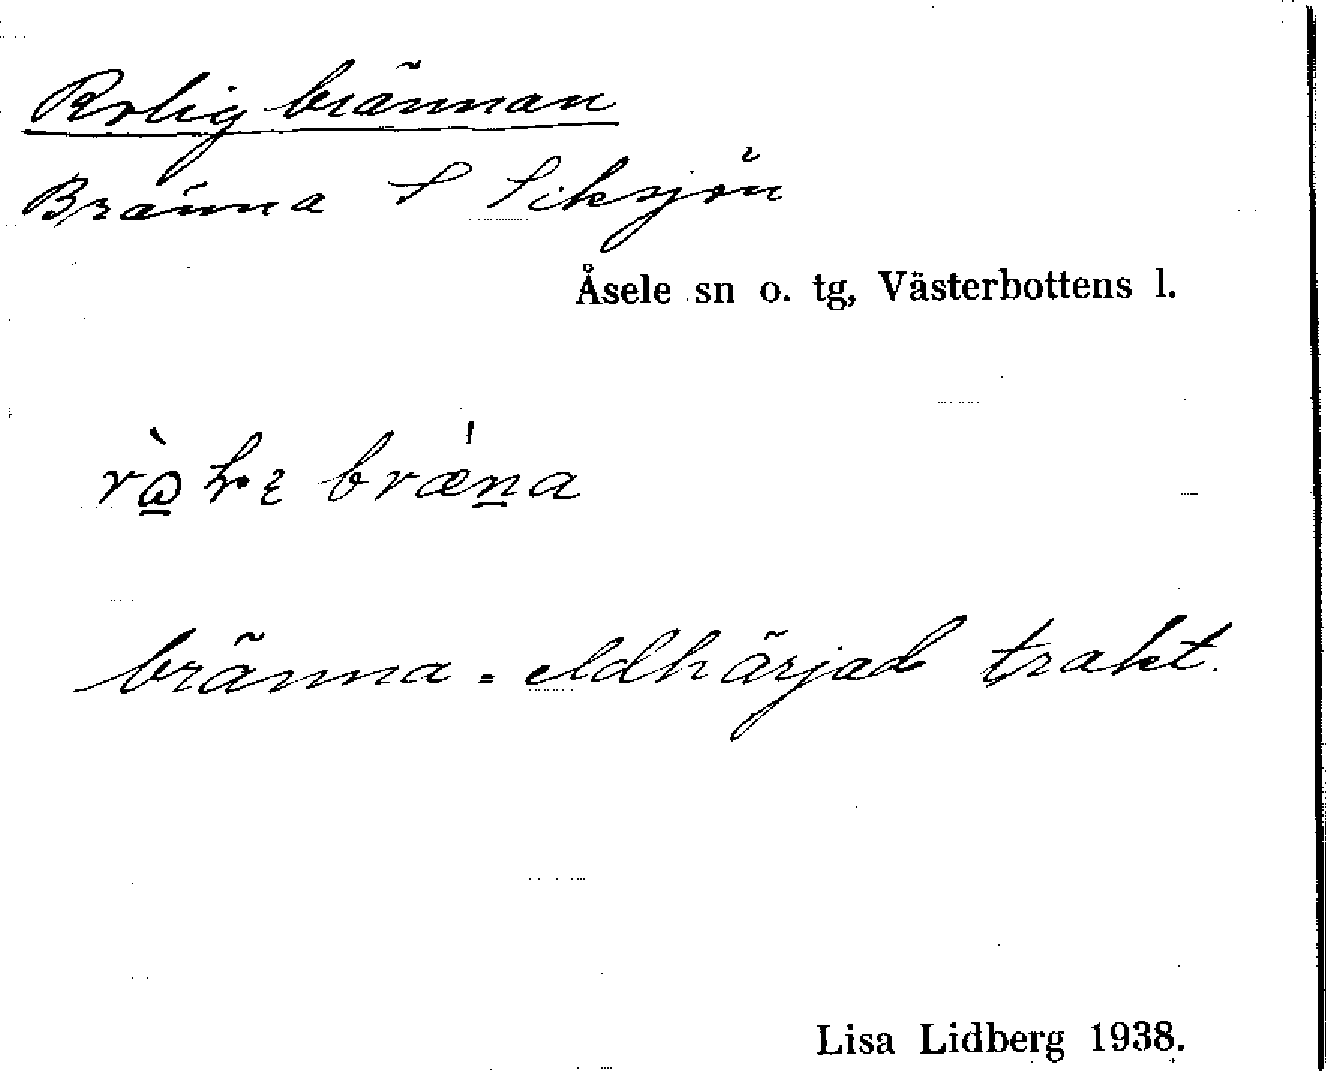 Roligbrännan
Bränna S Siksjön
Åsele sn o. tg, Västerbottens l.
bræna
bränna = eldhärjad trakt.
Lisa Lidberg 1938.